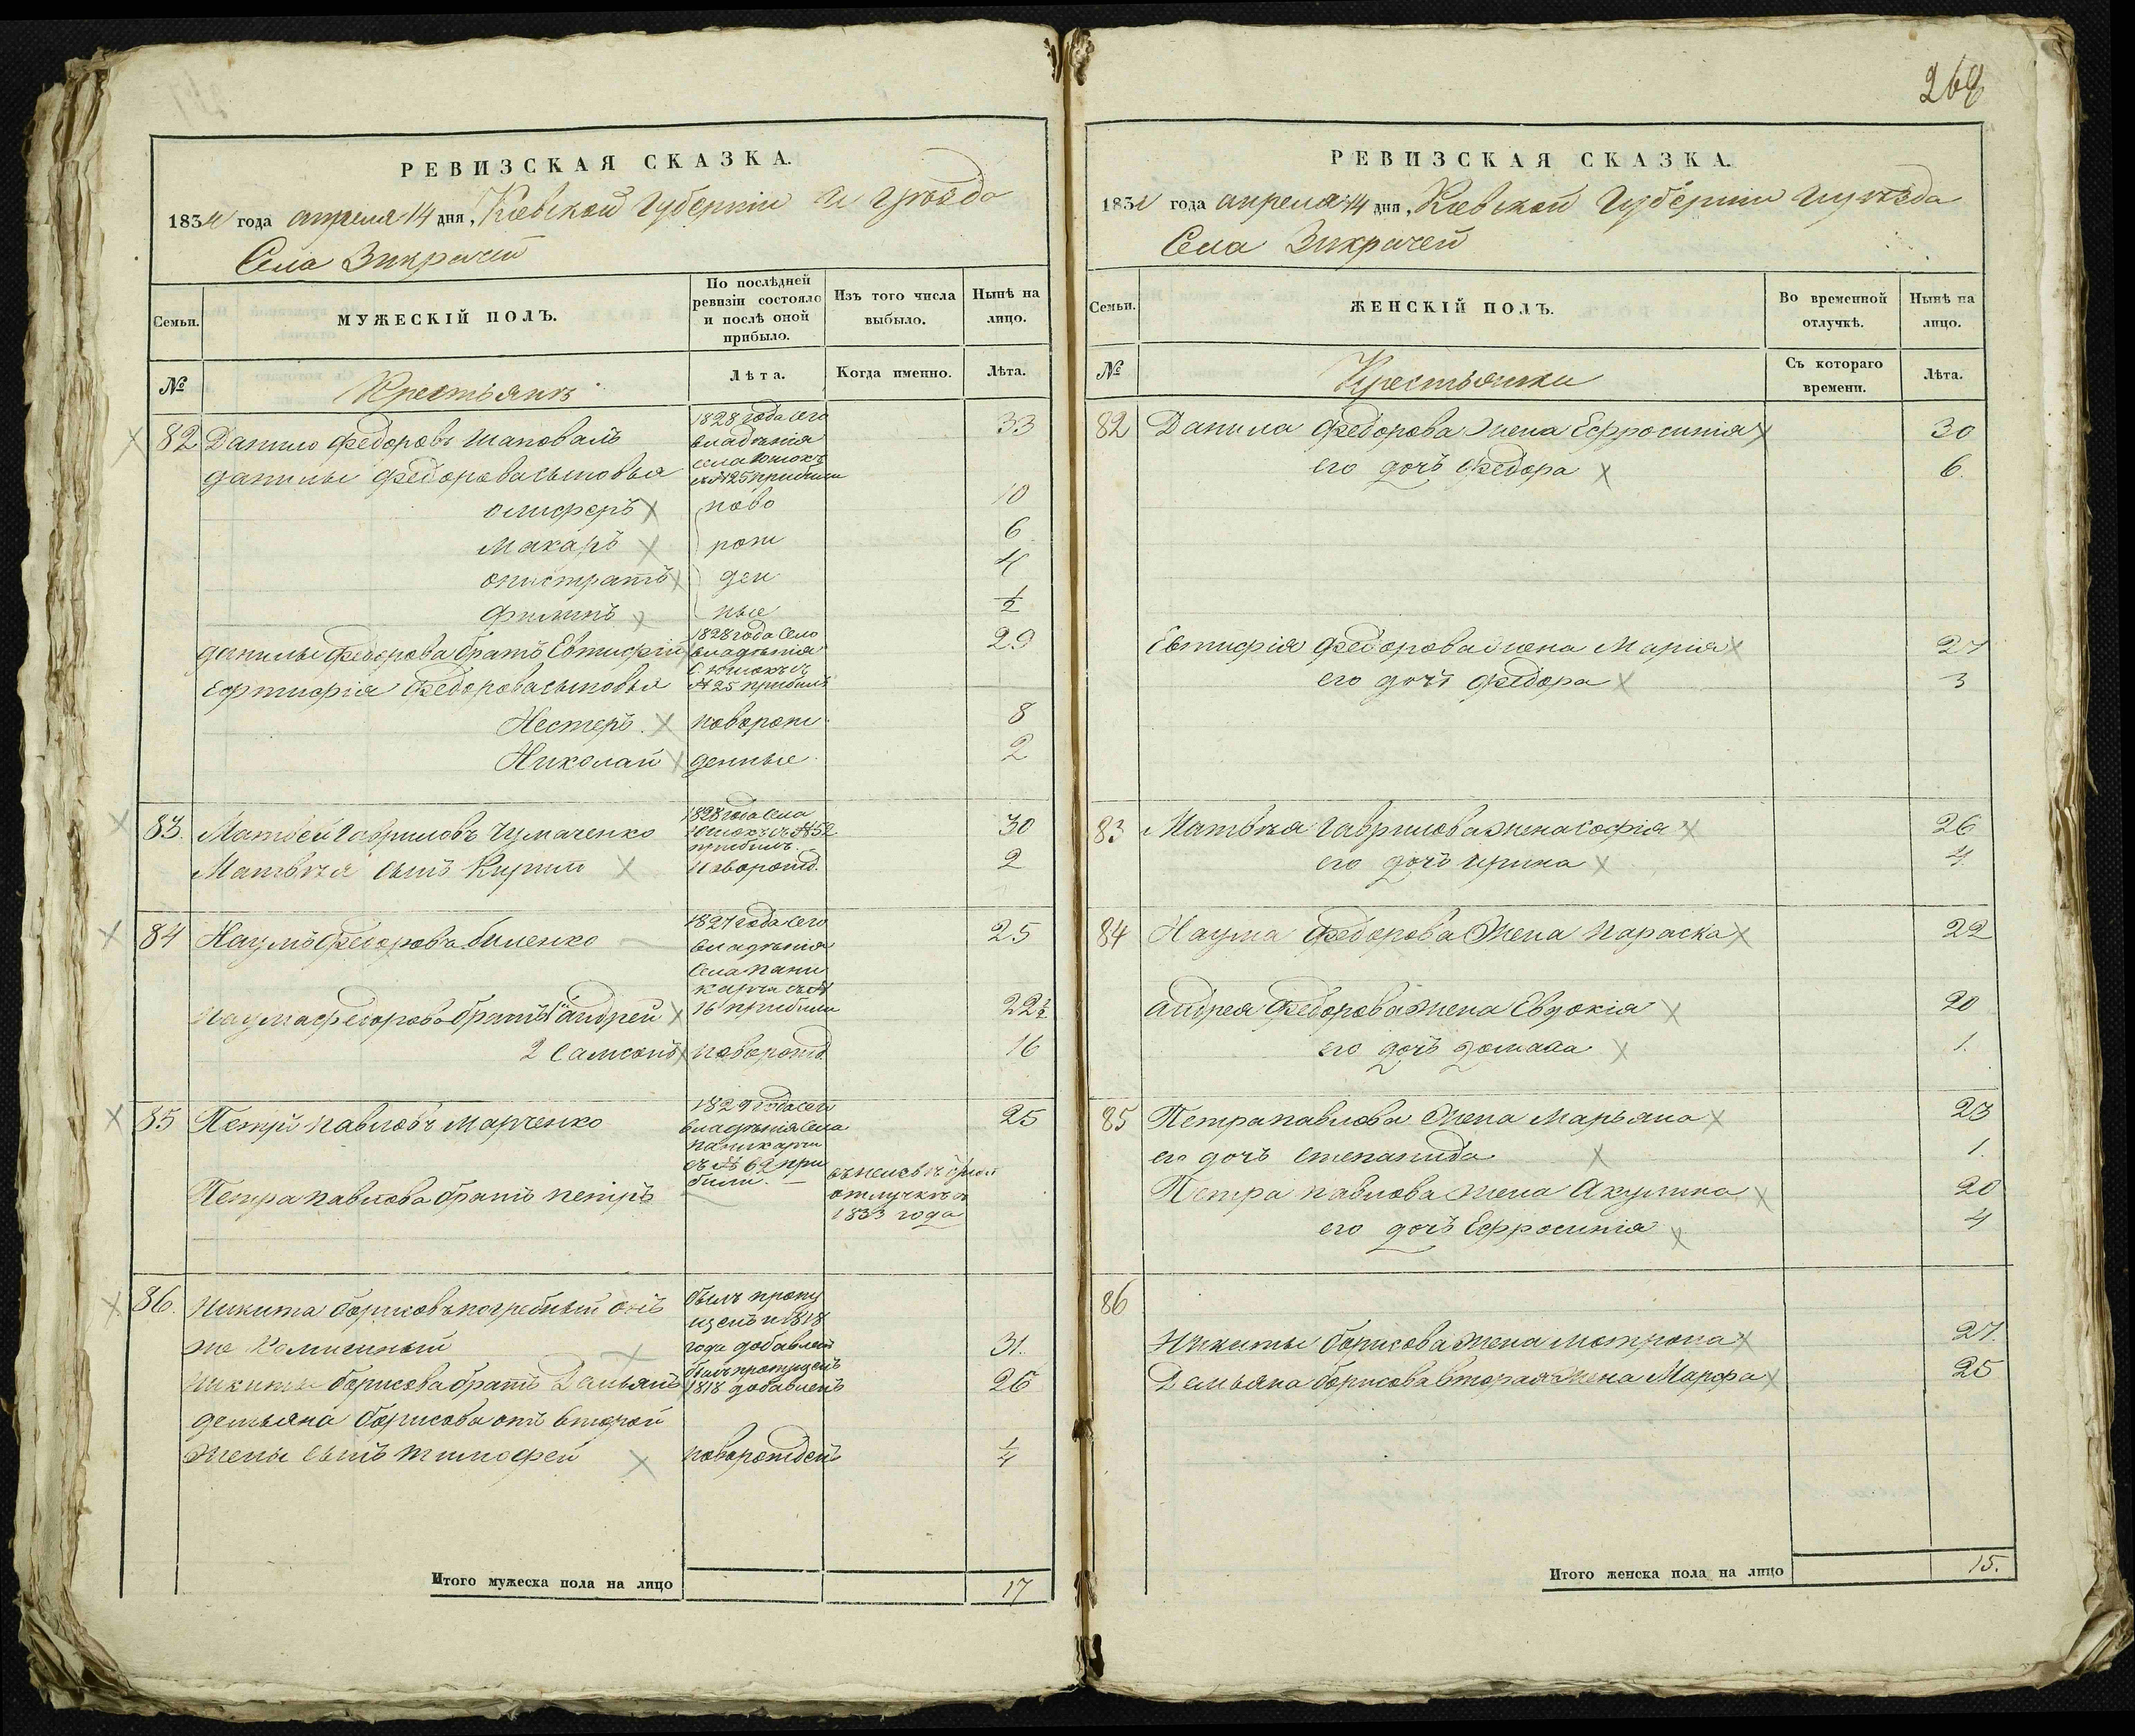 268
РЕВИЗСКАЯ СКАЗКА.
1834 года апреля 14 дня, Кіевской Губерніи и уѣзда
Села Зикрачей
Семьи.
МУЖЕСКІЙ ПОЛЪ.
По послѣдней ревизіи состояло и послѣ оной прибыло.
Изъ того числа выбыло.
Нынѣ на лицо.
№
Крестьянъ
Лѣта.
Когда именно.
Лѣта.
82 Данило Федоровъ Шаповалъ 1828 года сего владѣнія 33
данилы Федорова сыновья села Юшокъ съ №25 прибыли
олиферъ ново 10
Макаръ рож 6
онистратъ ден 4
Филипъ ные 1/2
данилы Федорова братъ Евтифій 1828 года Сего владѣнія 29
Ефтифія Федорова сыновья С. Юшокъ съ №25 прибылъ
Нестеръ новорож 8
Николай денные 2
83. Матвей Гавриловъ Чумаченко 1828 года Села Юшокъ съ №52 прибылъ 30
Матвѣя сынъ Кирилъ новорожд. 2
84 Наумъ Федоровъ биленко 1827 года сего владѣнія 25
Села пани карчи съ №
наума федорова братья 1й андрей 16 прибыли 22 1/2
2 Самсонъ новорожд 16
85 Петръ павловъ марченко 1829 года сего владѣнія Села 25
паникарчи съ № 62 прибыли.
Петра павлова братъ петръ отлучкѣ съ 1833 года
86. Никита борисовъ погребный онъ былъ пропущенъ и 1818
же года добавленъ 31.
Никиты борисова братъ Дамьянъ былъ пропущенъ 1818 добавленъ 26
демьяна борисова отъ второй
жены сынъ тимофей новорожденъ 1/4
Итого мужеска пола на лицо 17
РЕВИЗСКАЯ СКАЗКА.
1834 года апреля 14 дня, Кіевской Губерніи и уѣзда
Села Зикрачей
Семьи.
ЖЕНСКІЙ ПОЛЪ.
Во временной отлучкѣ.
Нынѣ на лицо.
№
Крестьянки
Съ котораго времени.
Лѣта.
82 Данила Федорова жена Ефросинія 30
его дочь Федора 6.
Евтифія Федорова жена Марія 27
его дочь Федора 3
83 Матвѣя Гаврилова жена софія 26
его дочь ирина 4.
84 Наума Федорова жена параска 22
андрея Федорова жена Евдокія 20
его дочь домаха 1.
85 Петра павлова жена Марьяна 23
его дочь степанида 1.
Петра павлова жена Акулина 20
его дочь Ефросинія 4
86
Никиты борисова жена мотрона 27.
Демьяна борисова вторая жена Марфа 25
Итого женска пола на лицо 15.